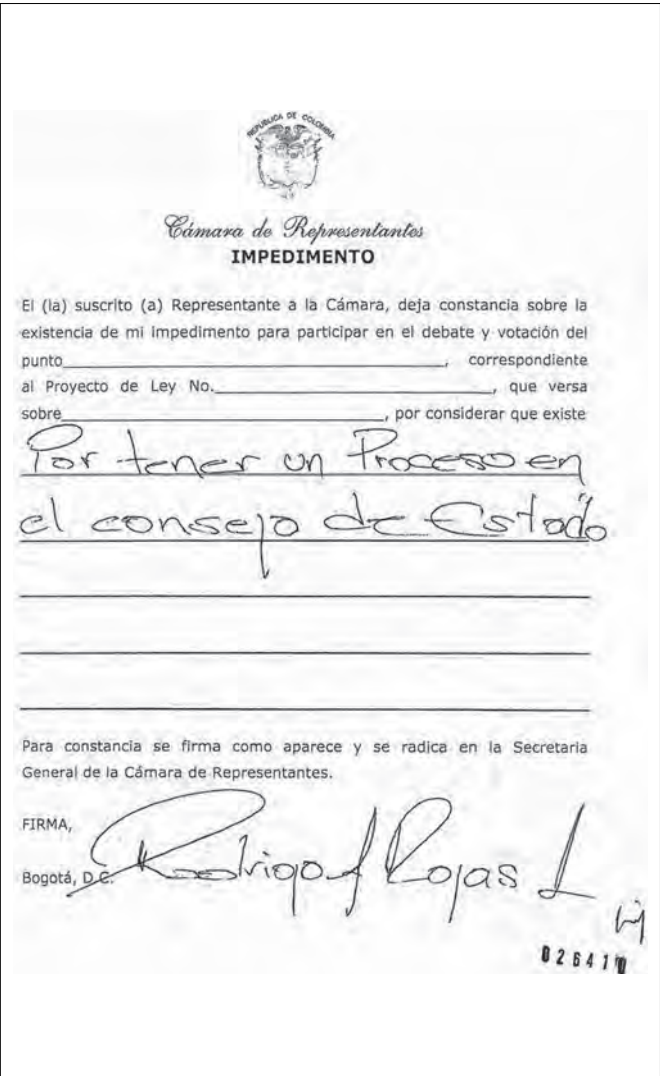 REPUBLICA DE COLOMBIA
Cámara de Representantes
IMPEDIMENTO
El (la) suscrito (a) Representante a la Cámara, deja constancia sobre la
existencia de mi impedimento para participar en el debate y votación del
punto____________________, correspondiente
al Proyecto de Ley No.____________________, que versa
sobre____________________, por considerar que existe
Por tener un Proceso en
el consejo de Estado
Para constancia se firma como aparece y se radica en la Secretaria
General de la Cámara de Representantes.
FIRMA,
Rodrigo Rojas L
Bogotá, D.C.